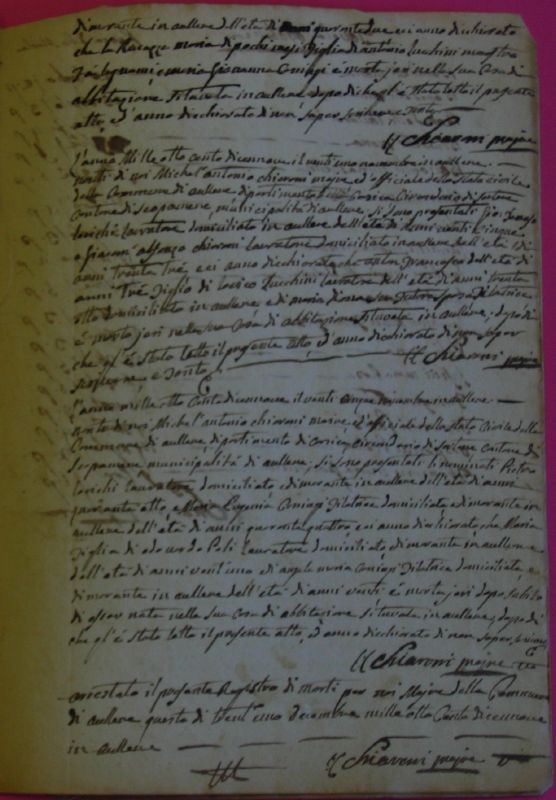 dimorante in aullene dell'età di anni quaranta due ci anno dichiarato
che la Ragazza moria di pochi mesi figlia di antonio Lucchini maestro
di legnami e maria Giovanna è morta jeri nella sua Casa di
abbitazione situata in aullene dopo di che gl'è stato letto il presente
atto, e d'anno dichiarato di non saper scrivere e
Chiaroni majre
l'anno Mille otto cento dicennove il venti uno novembre in aullene
avanti di noi Michel'antonio chiaroni majre ed officiale dello stato civile
della Commune di aullene dipartimento di Corsica Circondario di sartene
Cantone di scopamene, municipalità di aullene, si sono presentati
lavratore domiciliato in aullene dell'età di anni venti cinque
e Giacom' alfonzo chiaroni lavratore domiciliato in aullene dell'età di
anni Trenta tré e ci anno dichiarato che Francesco dell'età di
anni tré figlio di Lucchini lavratore dell'età di anni trenta
otto domiciliato in aullene e di maria sua sposa filatrice
è morto jeri nella sua Casa di abbitazione situata in aullene, dopo di
che gl'è stato letto il presente atto, e d'anno dichiarato di non saper
scrivere e
Chiaroni majre
l'anno mille otto Cento dicennove il venti cinque novembre in aullene
avanti di noi Michel'antonio chiaroni majre ed officiale dello stato Civile della
Commune di aullene dipartimento di Corsica circondario di sartene Cantone di
scopamene municipalità di aullene, si sono presentati li nominati
lavratore domiciliato, e dimorante in aullene dell'età di anni
quaranta otto, e Maria Eugenia filatrice domiciliata e dimorante in
aullene dell'età di anni quaranta quattro e ci anno dichiarato che Maria
figlia di Poli lavratore domiciliato, e dimorante in aullene
dell'età di anni vent'uno e di angela maria filatrice domiciliata e
dimorante in aullene dell'età di anni venti è morta jeri dopo subito
di esser nata nella sua Casa di abbitazione situata in aullene, dopo di
che gl'è stato letto il presente atto, e d'anno dichiarato di non saper scrivere
Chiaroni majre
arrestato il presente Registro di morti per noi Majre della Commune
di aullene questo dì trent'uno decembre mille otto Cento dicennove
in aullene
Chiaroni majre